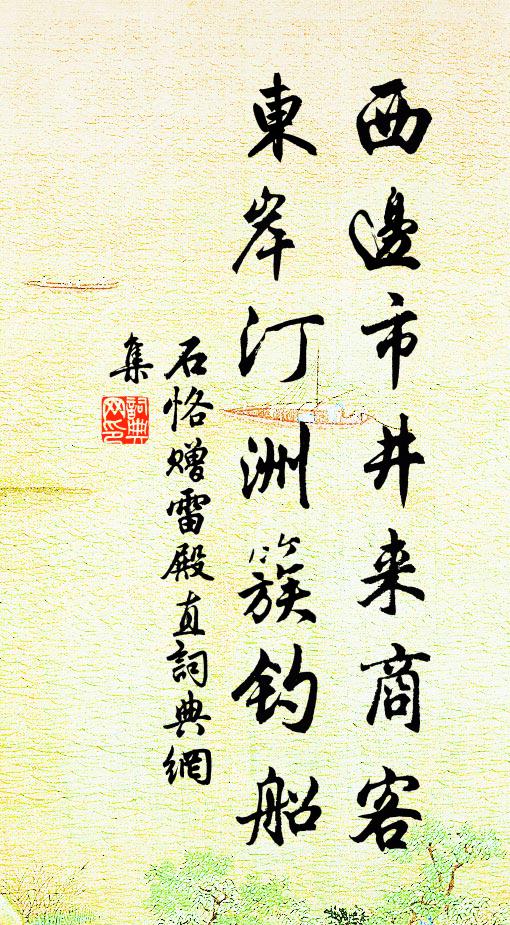 西邊市井来商客
東岸汀洲簇钓船
石恪赠雷殿直詞典網
集
詞典網印